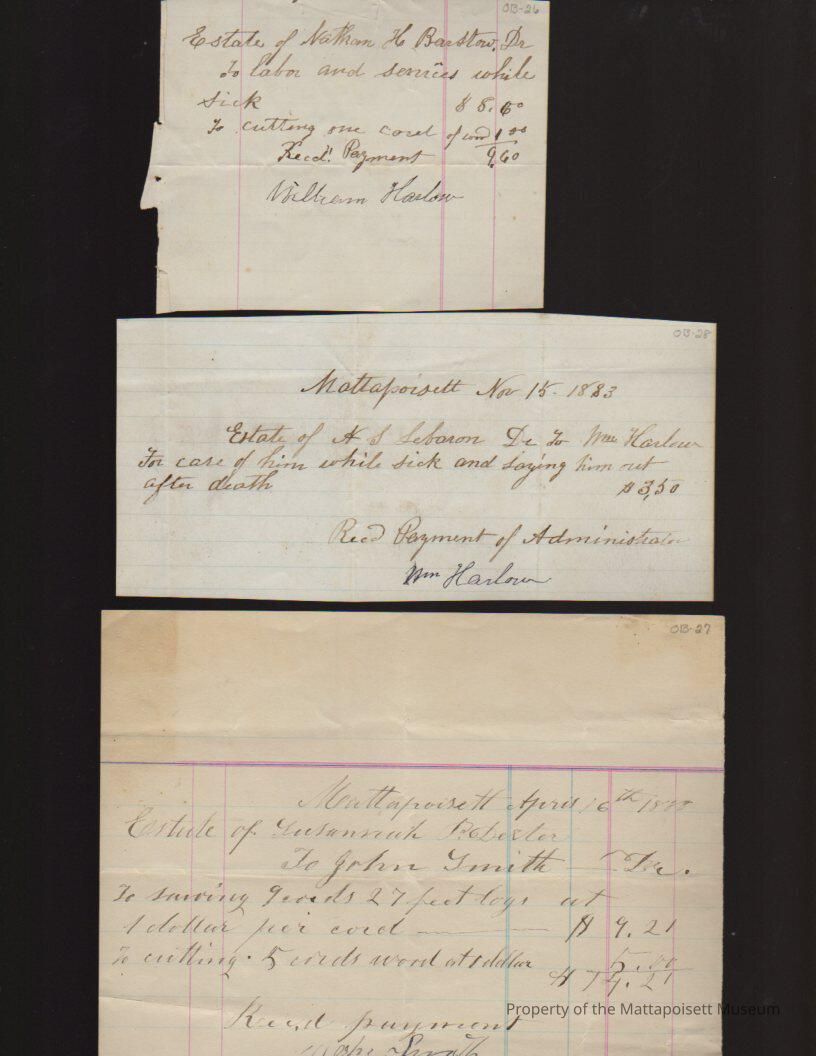 OB-26
Estate of Nathan H Barstow, Dr
To labor and services while
sick $8.60
To cutting one cord of 1.00
Recd. Payment 9,60
William Harlow
OB-28
Mattapoisett Nov 15 - 1883
Estate of N S Lebaron Dr To Wm Harlow
For care of him while sick and laying him out
after death $3,50
Recd Payment of Administrator
Wm Harlow
OB-27
Mattapoisett April 16th
Estate of Susannah Dexter
To John Smith Dr.
To sawing 9 cords 27 feet logs at
1 dollar per cord $ 9.21
To cutting 5 cords wood at 1 dollar 5.00
$ 14.21
Recd payment
John Smith
Property of the Mattapoisett Museum